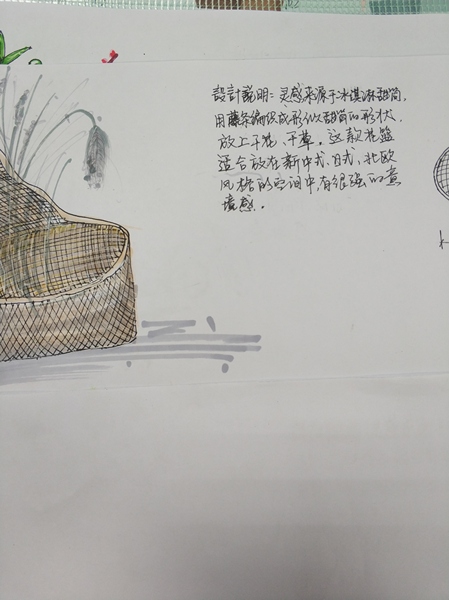 設計説明：灵感来源于冰淇淋甜筒，
用藤条编织成形似甜筒的形状，
放上干花，干草。这款花篮
适合放在新中式，日式，北欧
风格的空间中，有很强的意
境感。